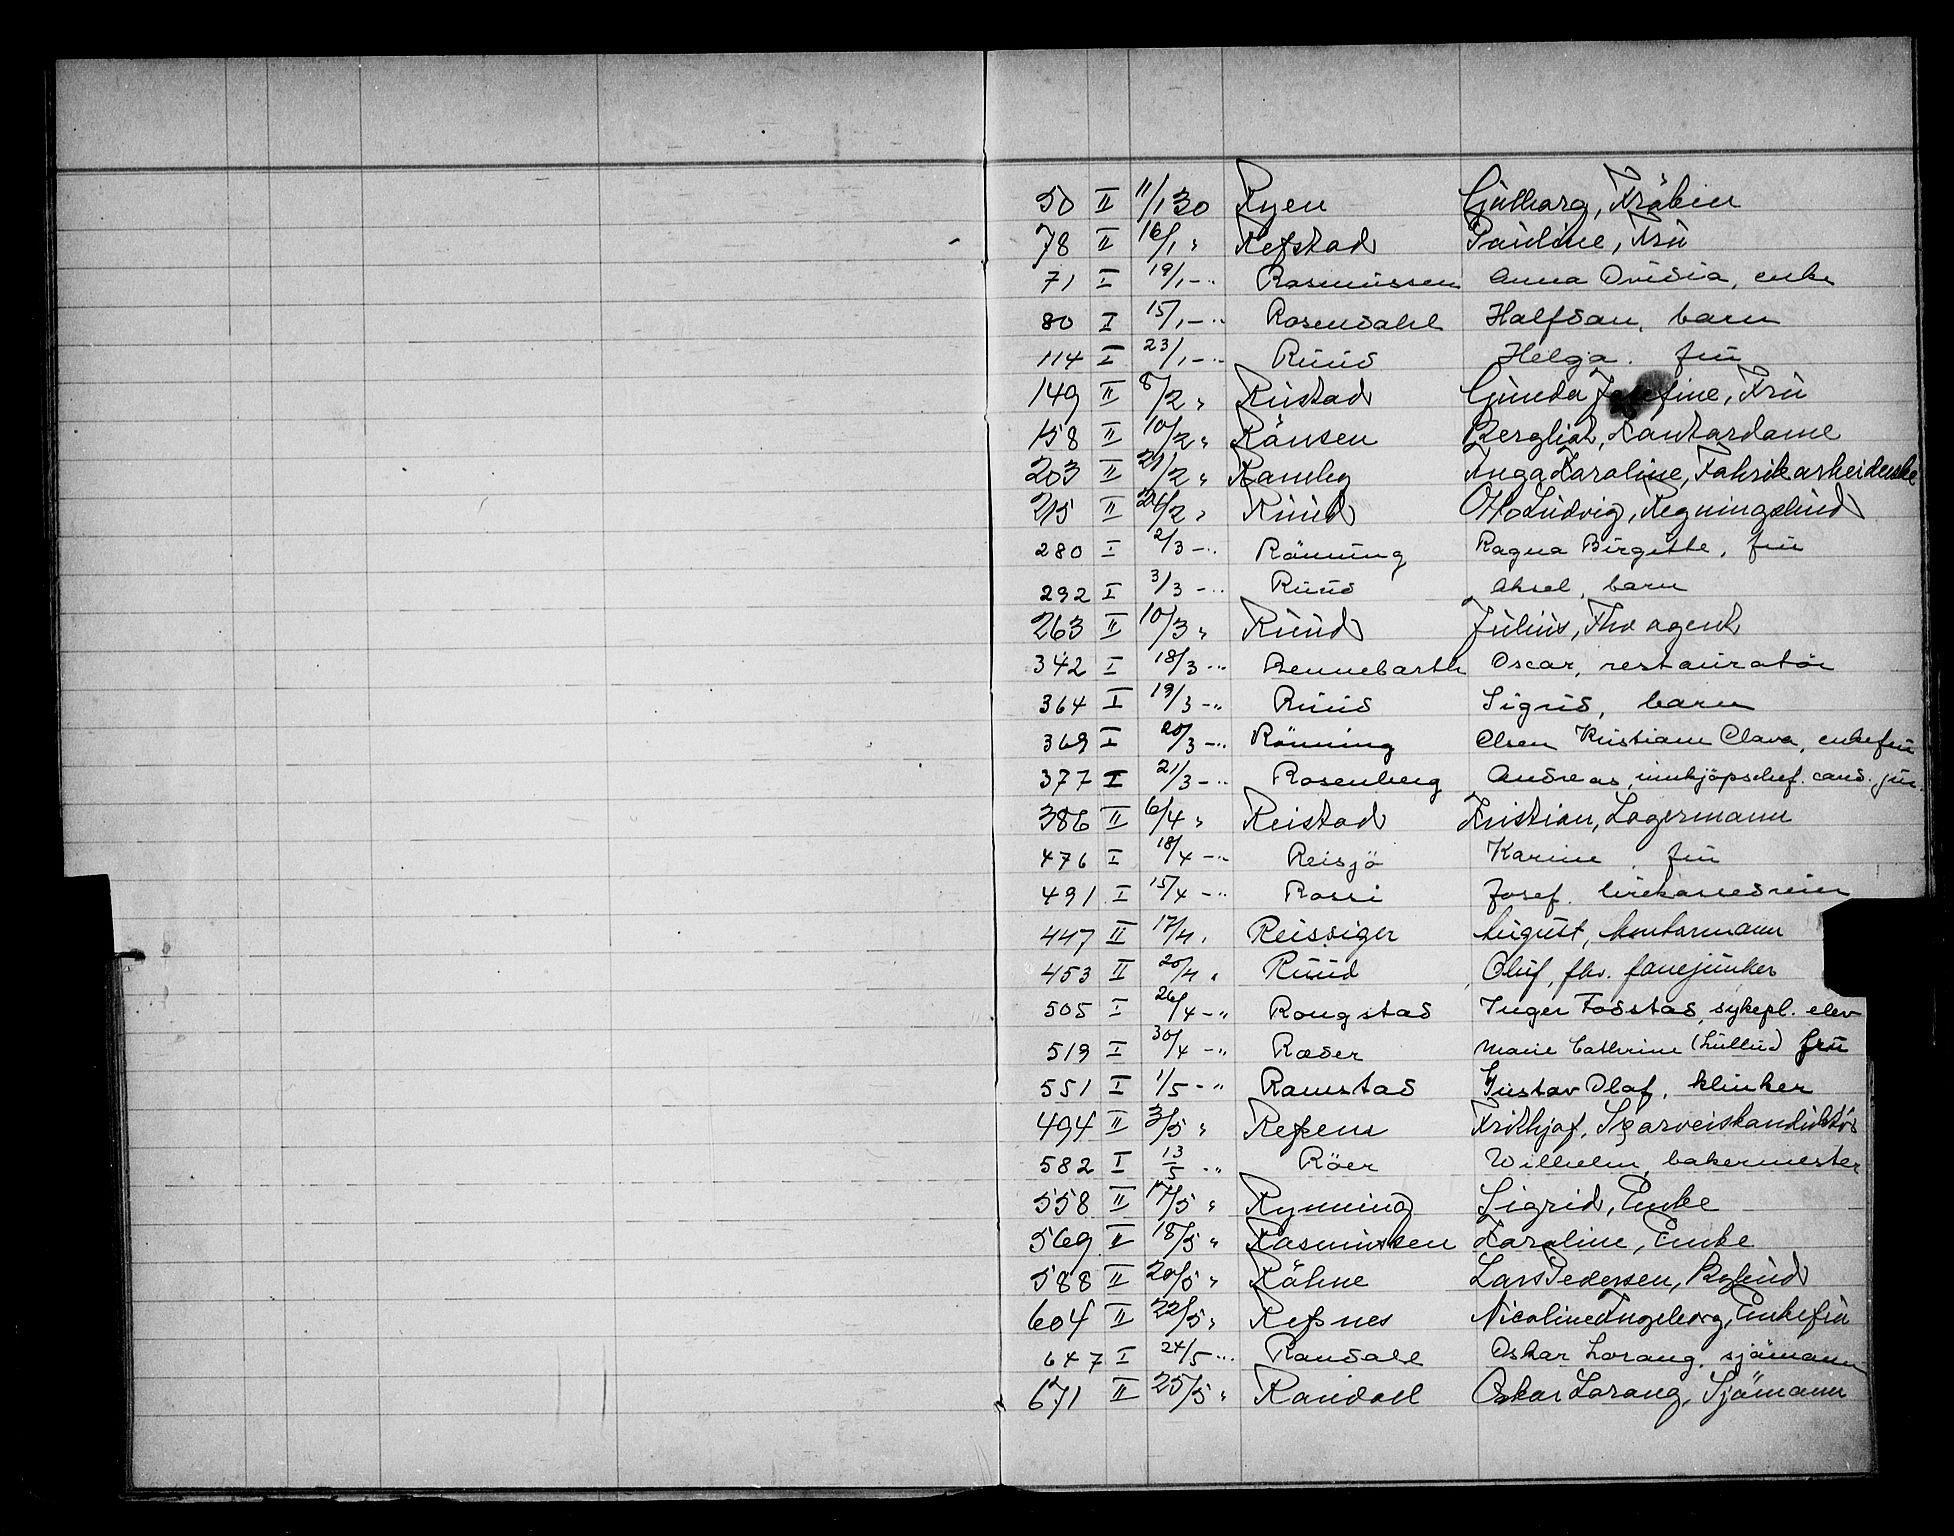 50 II 11/1 30 Ryen Gulborg, Frøken
78 II 16/1 " Refstad Pauline, Fru
71 I 19/1 -" Rasmussen Anna Ovidia, enke
80 I 15/1 -" Rosendahl Halfdan, barn
114 I 23/1 -" Ruud Helga. fru
149 II 8/2 " Rustad Gunda Josefine, Fru
158 II 10/2 " Rönsen Bergliot, Kontordame
203 II 21/2 " Ramby Inga Karoline, Fabrikarbeiderske
215 II 26/2 " Ruud Otto Ludvig, Regningsbud
280 I 2/3 -" Rönning Ragna Birgitte, fru
292 I 3/3 -" Ruud Aksel, barn
263 II 10/3 " Ruud Julius, Fhv agent
342 I 18/3 -" Rennebarth Oscar, restauratör
364 I 19/3 -" Ruud Sigrid, barn
369 I 20/3 -" Rönning Olsen Kristiane Olava, enkefru
377 I 21/3 -" Rosenberg Andreas, innkjöpschef. cand. jur.
386 II 6/4 " Reistad Kristian, Lagermann
476 I 18/4 -" Reisjö Karine, fru
491 I 15/4 -" Rossi Josef.
447 II 17/4 " Reissiger August, kontormann
453 II 20/4 " Ruud Oluf, fhv. fanejunker
505 I 26/4 -" Rongstad Inger Fosstad, sykepl. elev
519 I 30/4 -" Ræder Marie Cathrine (Lullu) fru
551 I 1/5 -" Ramstad Gustav Olaf, klinker
494 II 3/5 " Refsem Fridthjof, Sporveiskonduktör
582 I 13/5 -" Röer Wilhelm, bakermester
558 II 17/5 " Rynning Sigrid, Enke
569 II 18/5 " Rasmussen Karoline, Enke
588 II 20/5 " Röhne Lars Pedersen, Bybud
604 II 22/5 " Refsnes Nicoline Ingeborg, Enkefru
647 I 24/5 -" Randall Oskar Lorang, sjömann
671 II 25/5 " Randall Oskar Lorang, Sjömann